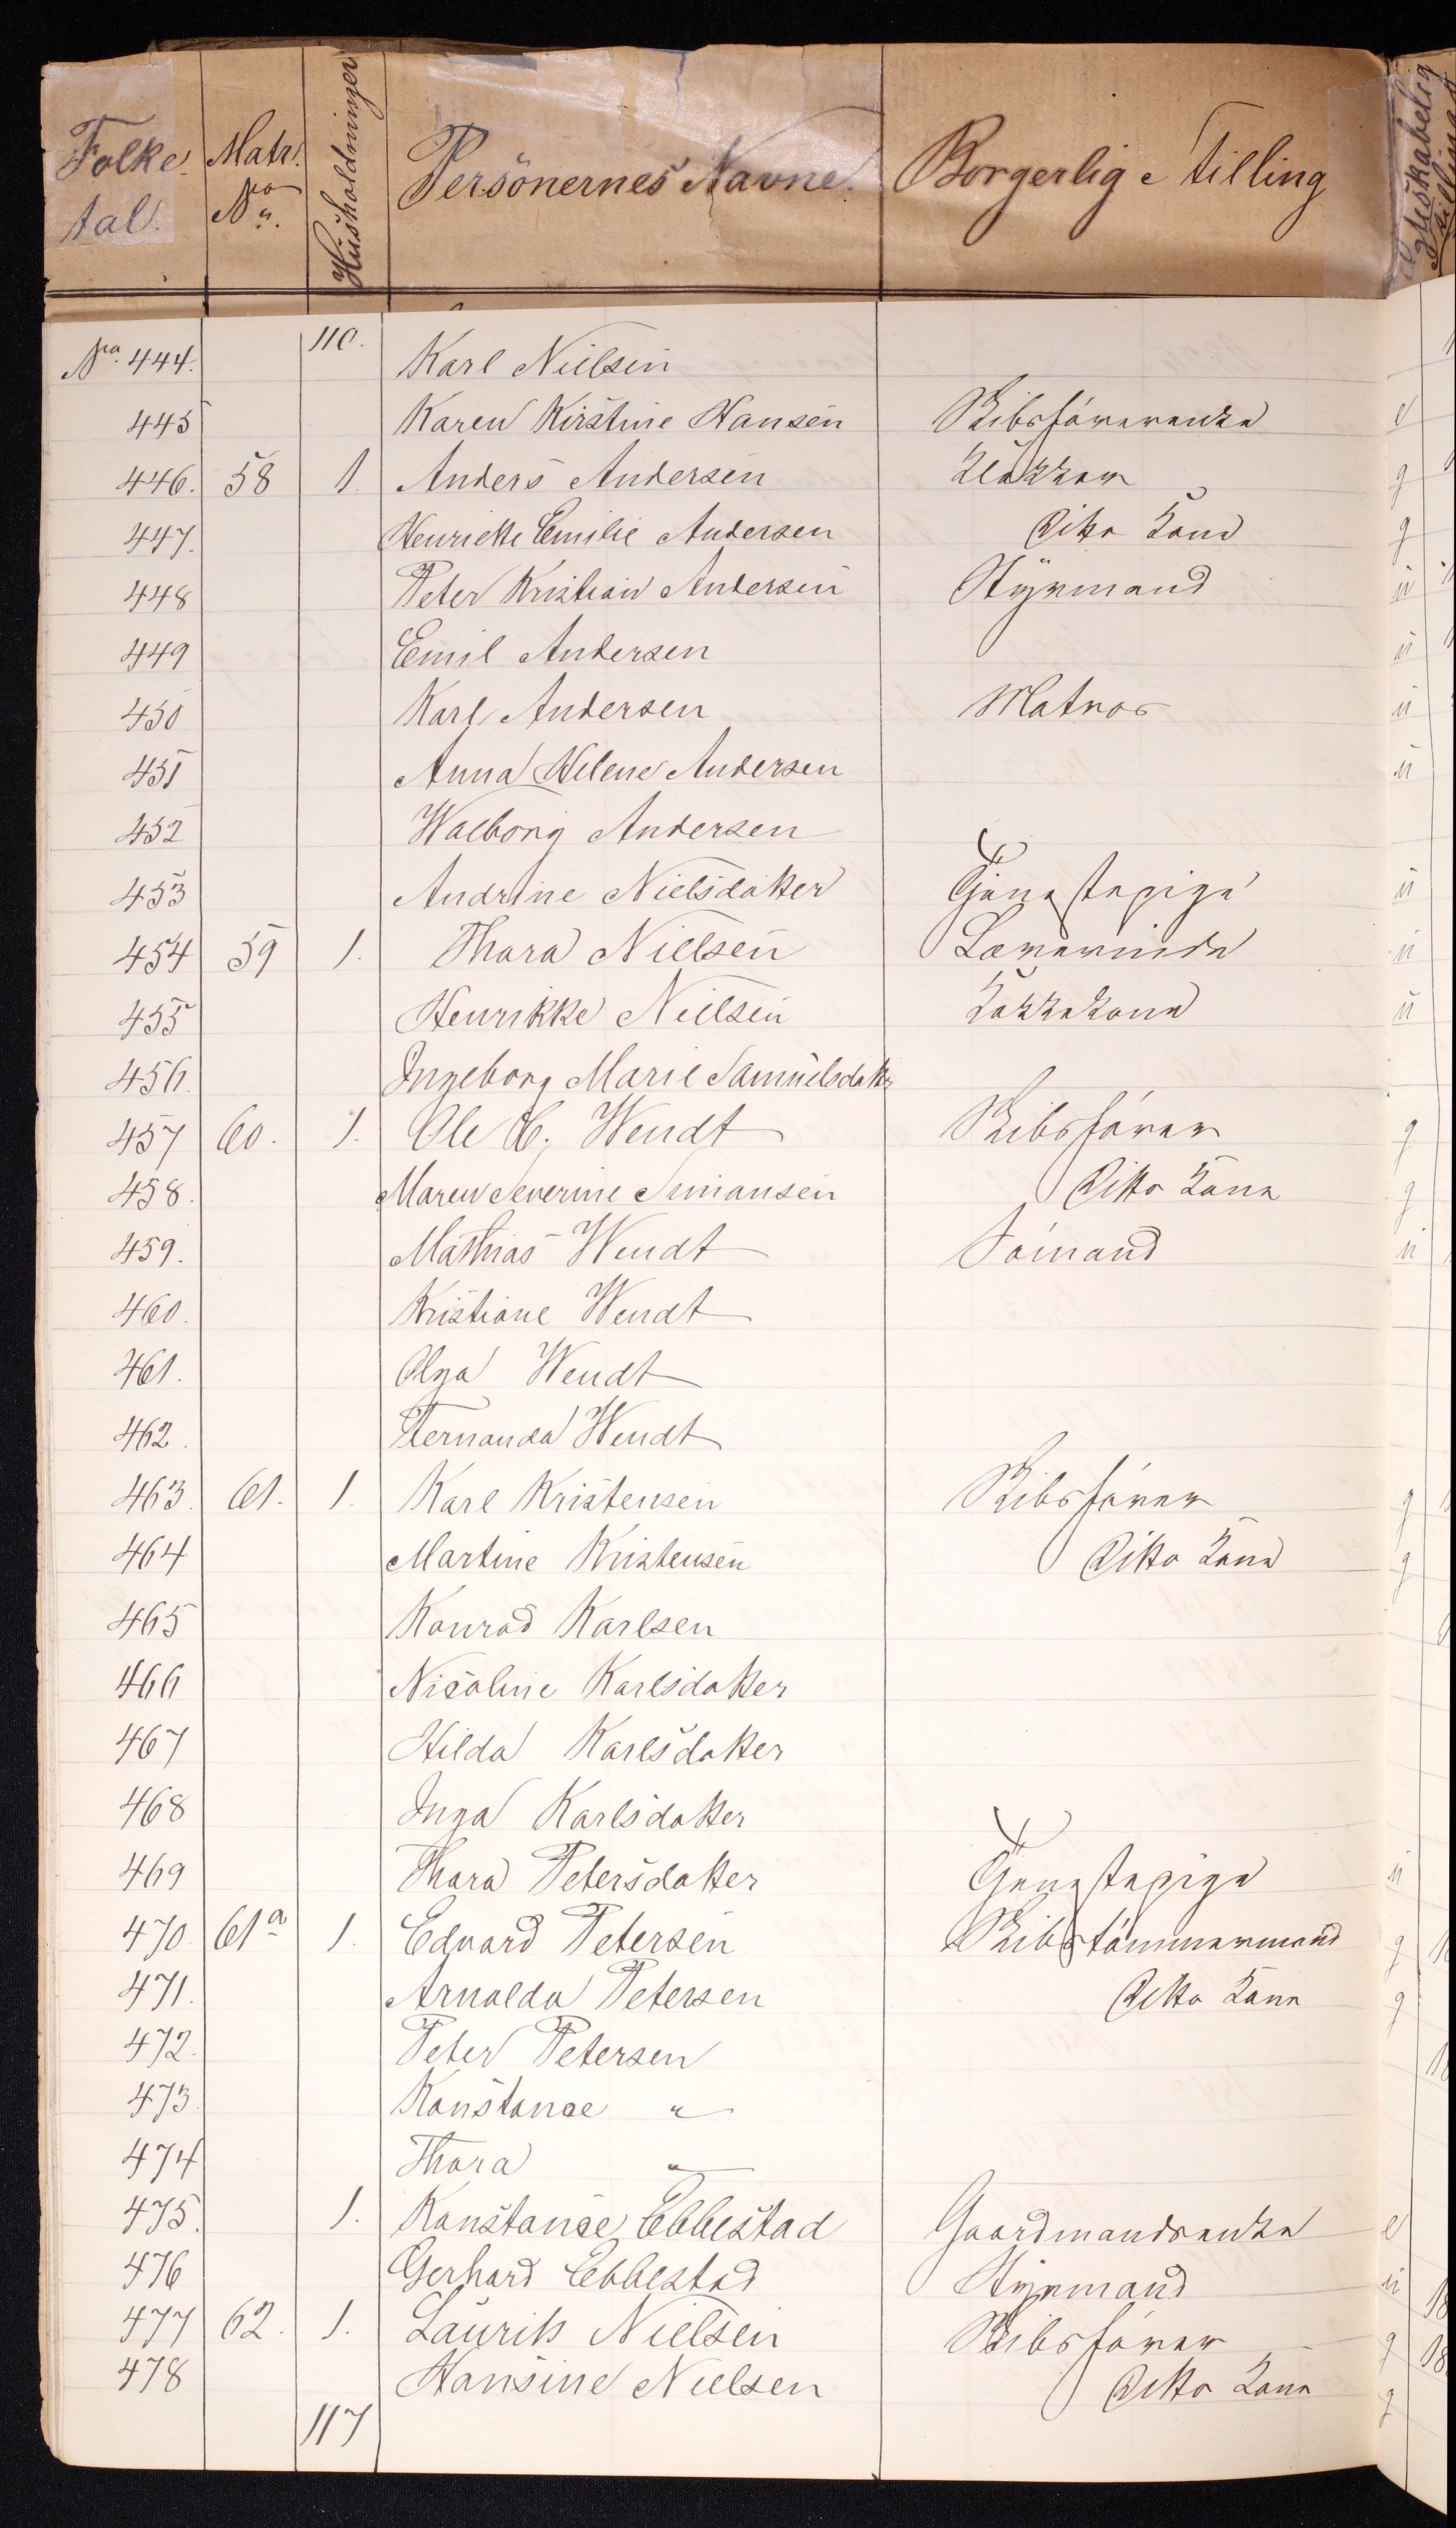 Folke tal. Matr. No. Husholdninger Personernes Navne. Borgerlig Stilling Egteskabelig Stilling
110.
No. 444. Karl Nielsen
445 Karen Kirstine Hansen Skibsförerenke e
446. 58 1. Anders Andersen Klokker g
447. Henrikke Emilie Andersen Ditto Kone g
448 Peter Kristian Andersen Styrmand ü
449 Emil Andersen ü
450 Karl Andersen Matros ü
451 Anna Helene Andersen ü
452 Walborg Andersen
453 Andrine Nielsdatter Tjenestepige ü
454 59 1. Thora Nielsen Lærerinde ü
455 Henrikke Nielsen Kokkekone ü
456. Ingeborg Marie Samuelsdattr
457 60. 1. Ole C. Wendt Skibsförer g
458. Maren Severine Simonsen Ditto Kone g
459. Mathias Wendt Sömand ü
460. Kristiane Wendt
461. Olga Wendt
462. Fernanda Wendt
463. 61. 1. Karl Kristensen Skibsförer g
464 Martine Kristensen Ditto Kone g
465 Konrad Karlsen
466 Nicoline Karlsdatter
467 Hilda Karlsdatter
468 Inga Karlsdatter
469 Thora Petersdatter Tjenestepige ü
470 61a 1. Edvard Petersen Skibstömmermand g
471. Arnolda Petersen Ditto Kone g
472. Peter Petersen
473. Konstance "
474 Thora "
475. 1. Konstance Ebbestad Gaardmandsenke e
476 Gerhard Ebbestad Styrmand ü
477 62. 1. Laurits Nielsen Skibsförer g 18
478 Hansine Nielsen Ditto Kone g
117